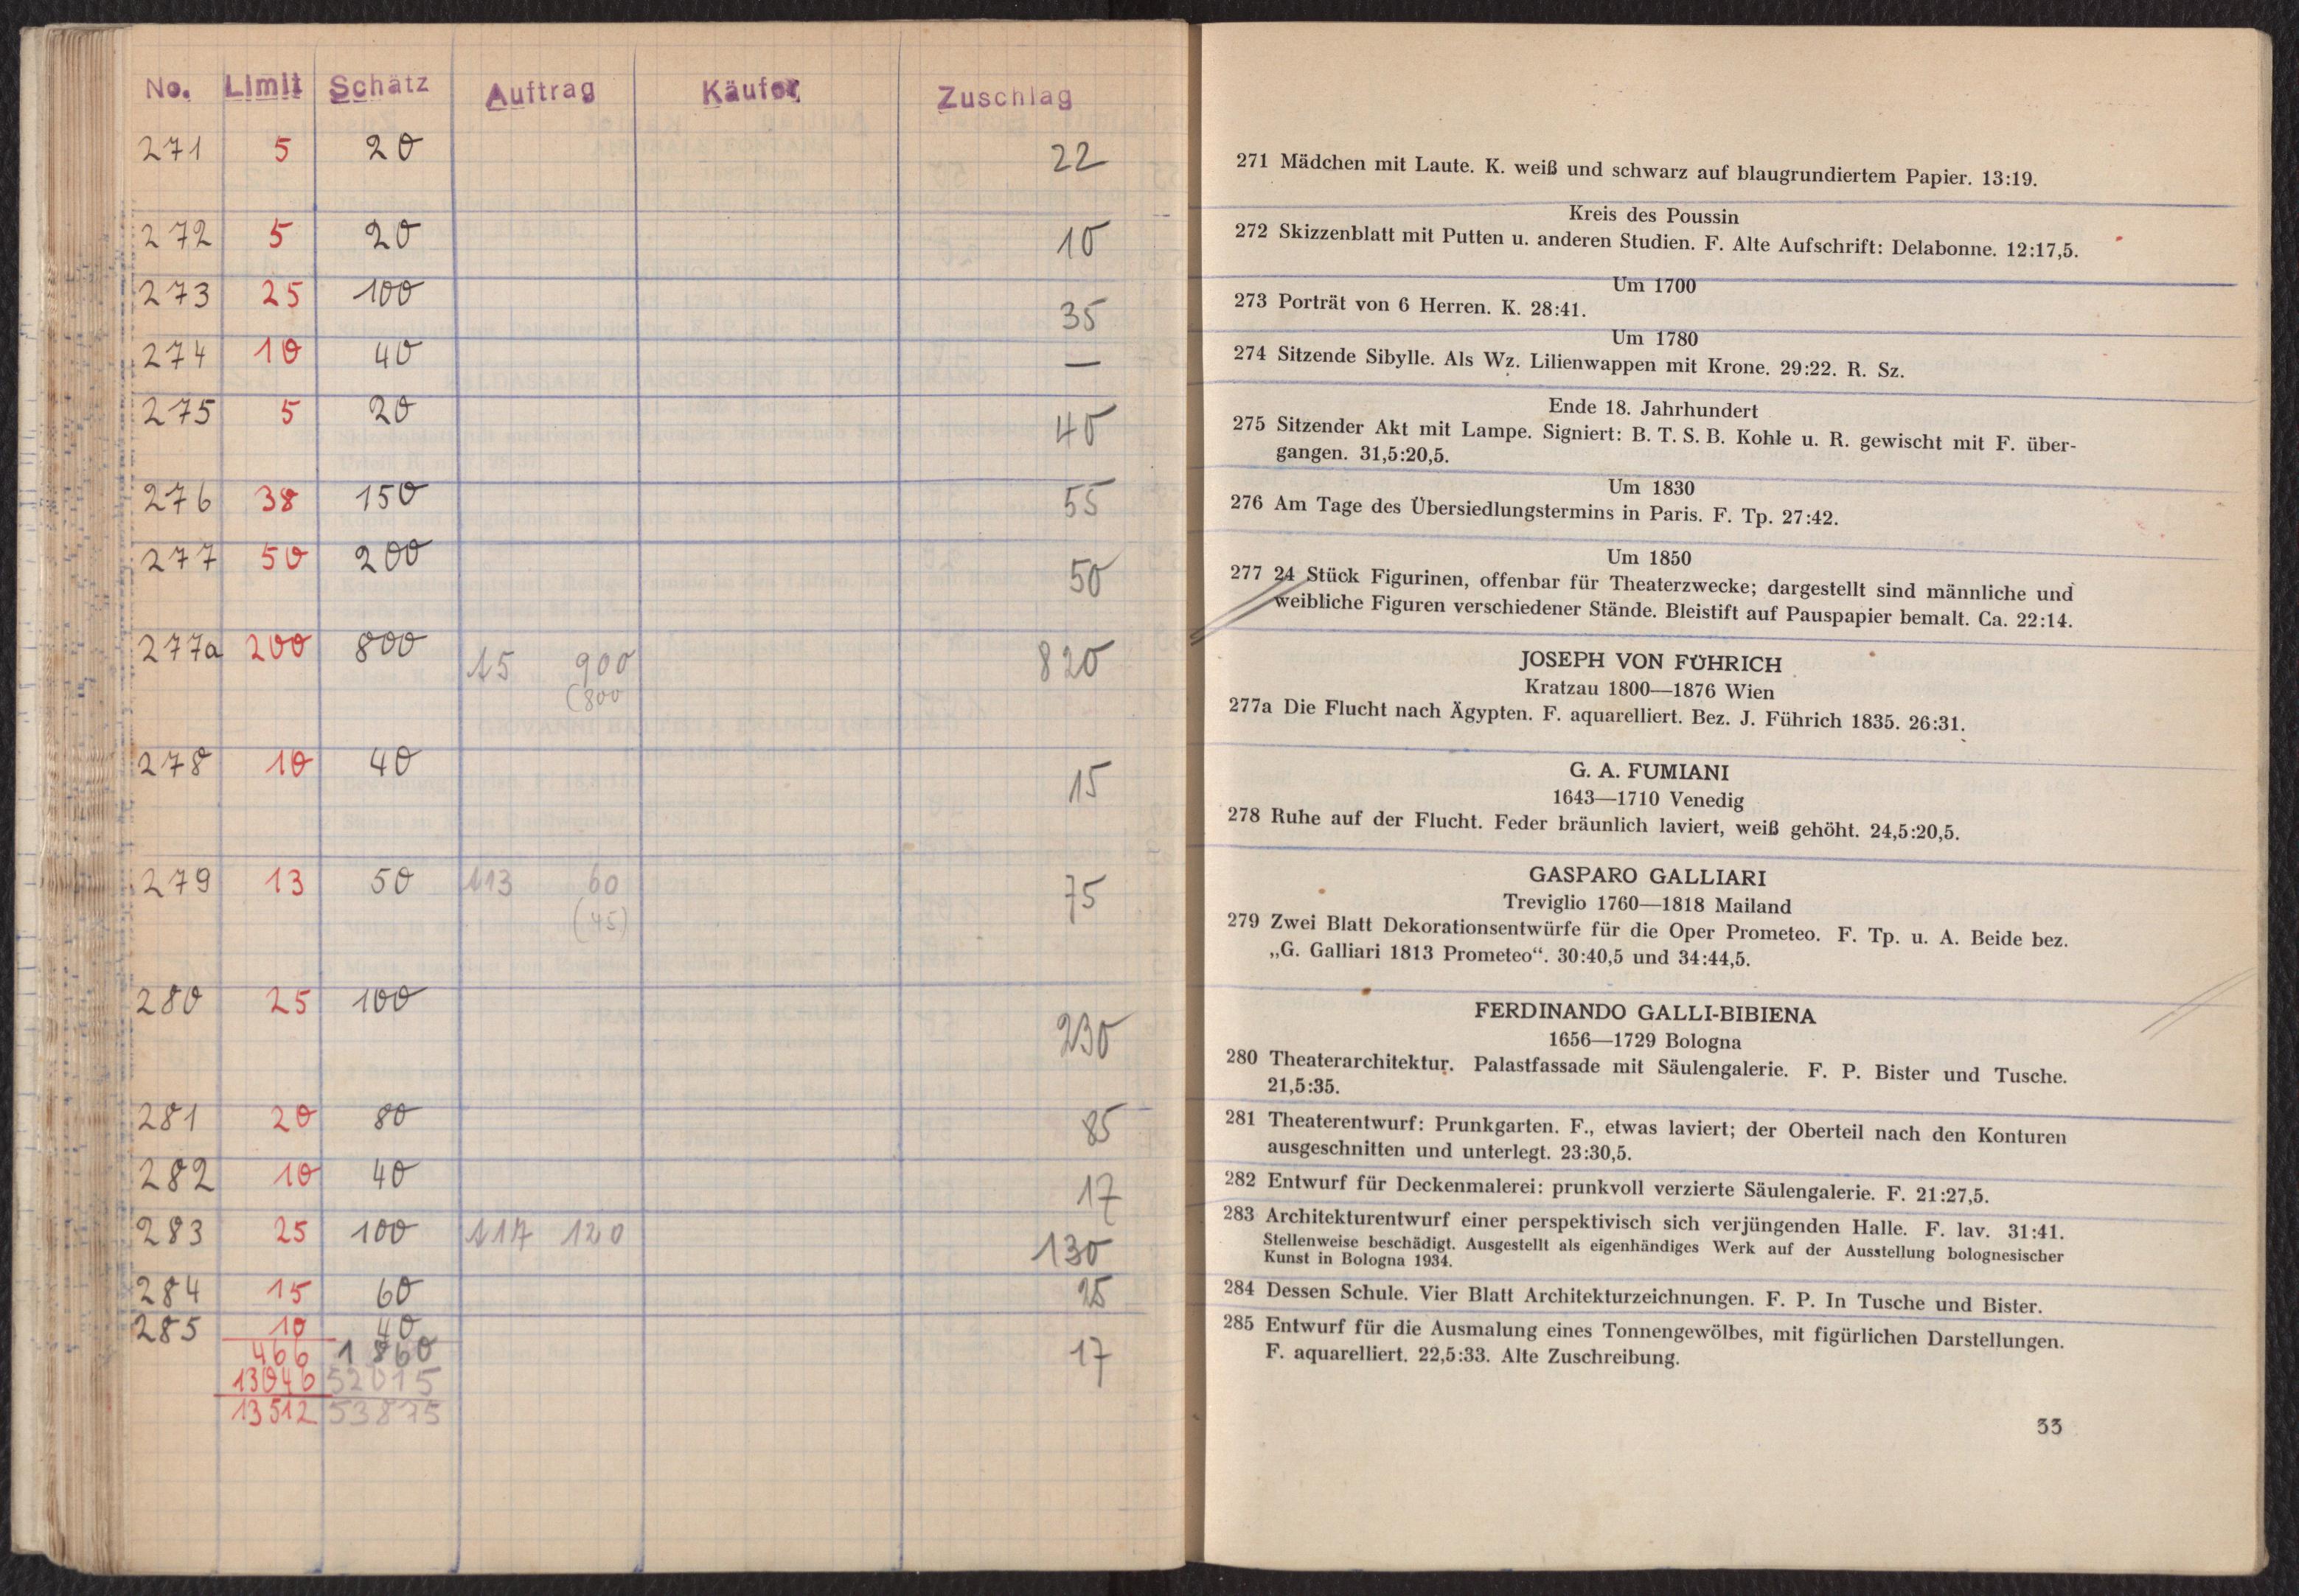 No. Limit Schätz Auftrag Käufer Zuschlag
271 5 20 22
272 5 20 10
273 25 100 35
274 10 40 —
275 5 20 40
276 38 150 55
277 50 200 50
277a 200 800 15 900 820
(800
278 10 40 15
279 13 50 113 60 75
(45)
280 25 100 230
281 20 80 85
282 10 40 17
283 25 100 117 120 130
284 15 60 25
285 10 40 17
466 1860
13046 52015
13512 53875
271 Mädchen mit Laute. K. weiß und schwarz auf blaugrundiertem Papier. 13:19.
Kreis des Poussin
272 Skizzenblatt mit Putten u. anderen Studien. F. Alte Aufschrift: Delabonne. 12:17,5.
Um 1700
273 Porträt von 6 Herren. K. 28:41.
Um 1780
274 Sitzende Sibylle. Als Wz. Lilienwappen mit Krone. 29:22. R. Sz.
Ende 18. Jahrhundert
275 Sitzender Akt mit Lampe. Signiert: B. T. S. B. Kohle u. R. gewischt mit F. über-
gangen. 31,5:20,5.
Um 1830
276 Am Tage des Übersiedlungstermins in Paris. F. Tp. 27:42.
Um 1850
277 24 Stück Figurinen, offenbar für Theaterzwecke; dargestellt sind männliche und
weibliche Figuren verschiedener Stände. Bleistift auf Pauspapier bemalt. Ca. 22:14.
JOSEPH VON FÜHRICH
Kratzau 1800—1876 Wien
277a Die Flucht nach Ägypten. F. aquarelliert. Bez. J. Führich 1835. 26:31.
G. A. FUMIANI
1643—1710 Venedig
278 Ruhe auf der Flucht. Feder bräunlich laviert, weiß gehöht. 24,5:20,5.
GASPARO GALLIARI
Treviglio 1760—1818 Mailand
279 Zwei Blatt Dekorationsentwürfe für die Oper Prometeo. F. Tp. u. A. Beide bez.
„G. Galliari 1813 Prometeo“. 30:40,5 und 34:44,5.
FERDINANDO GALLI-BIBIENA
1656—1729 Bologna
280 Theaterarchitektur. Palastfassade mit Säulengalerie. F. P. Bister und Tusche.
21,5:35.
281 Theaterentwurf: Prunkgarten. F., etwas laviert; der Oberteil nach den Konturen
ausgeschnitten und unterlegt. 23:30,5.
282 Entwurf für Deckenmalerei: prunkvoll verzierte Säulengalerie. F. 21:27,5.
283 Architekturentwurf einer perspektivisch sich verjüngenden Halle. F. lav. 31:41.
Stellenweise beschädigt. Ausgestellt als eigenhändiges Werk auf der Ausstellung bolognesischer
Kunst in Bologna 1934.
284 Dessen Schule. Vier Blatt Architekturzeichnungen. F. P. In Tusche und Bister.
285 Entwurf für die Ausmalung eines Tonnengewölbes, mit figürlichen Darstellungen.
F. aquarelliert. 22,5:33. Alte Zuschreibung.
33